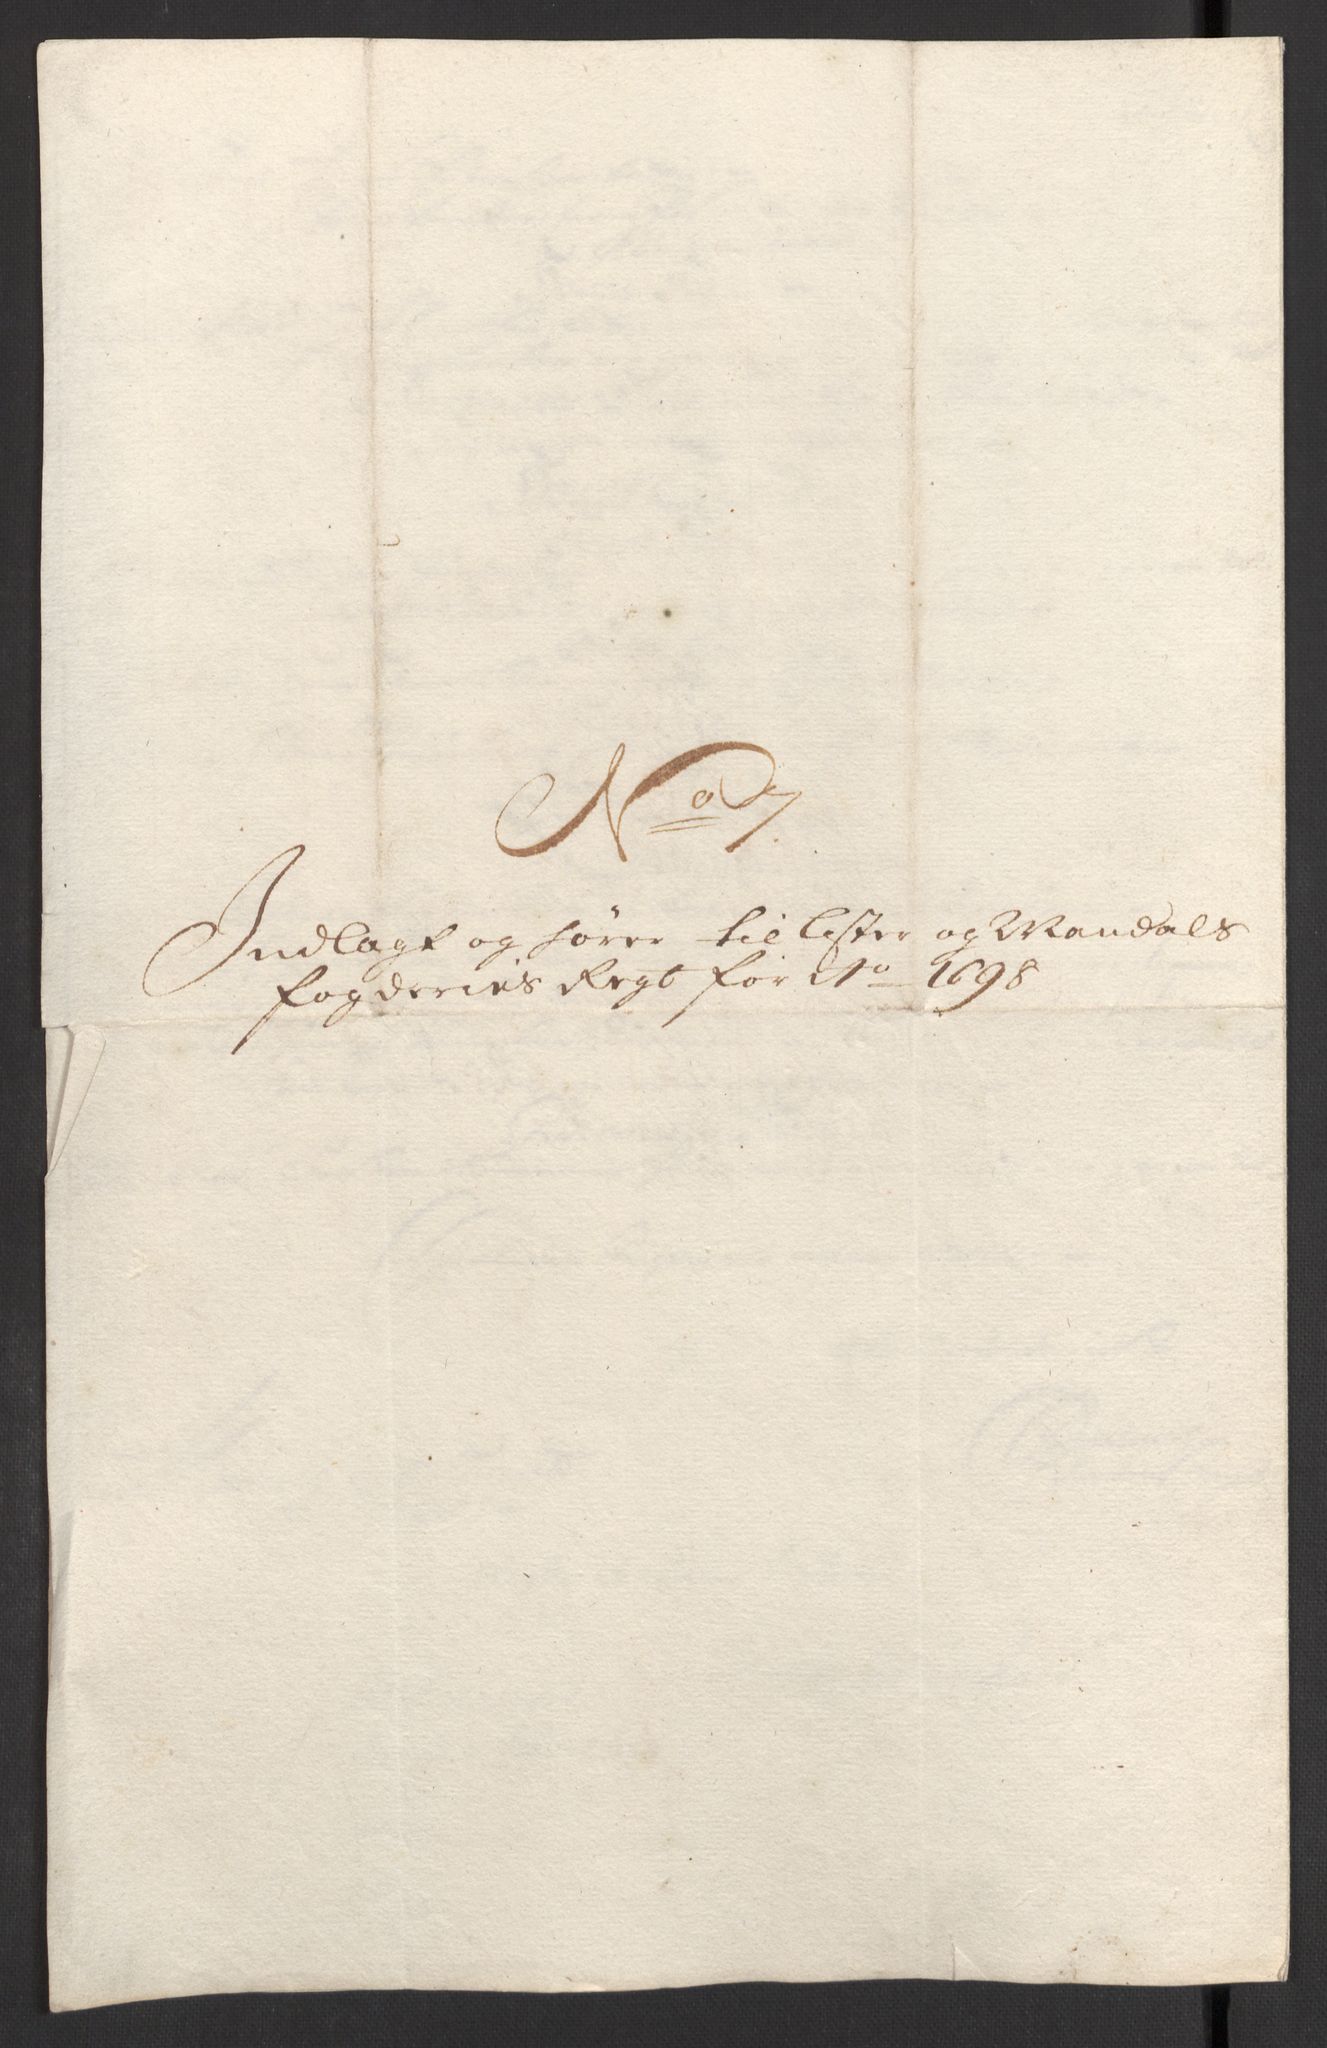 No 7.
Indlagt og hører til Lister og Mandals
fogderies Regb for Ao 1698